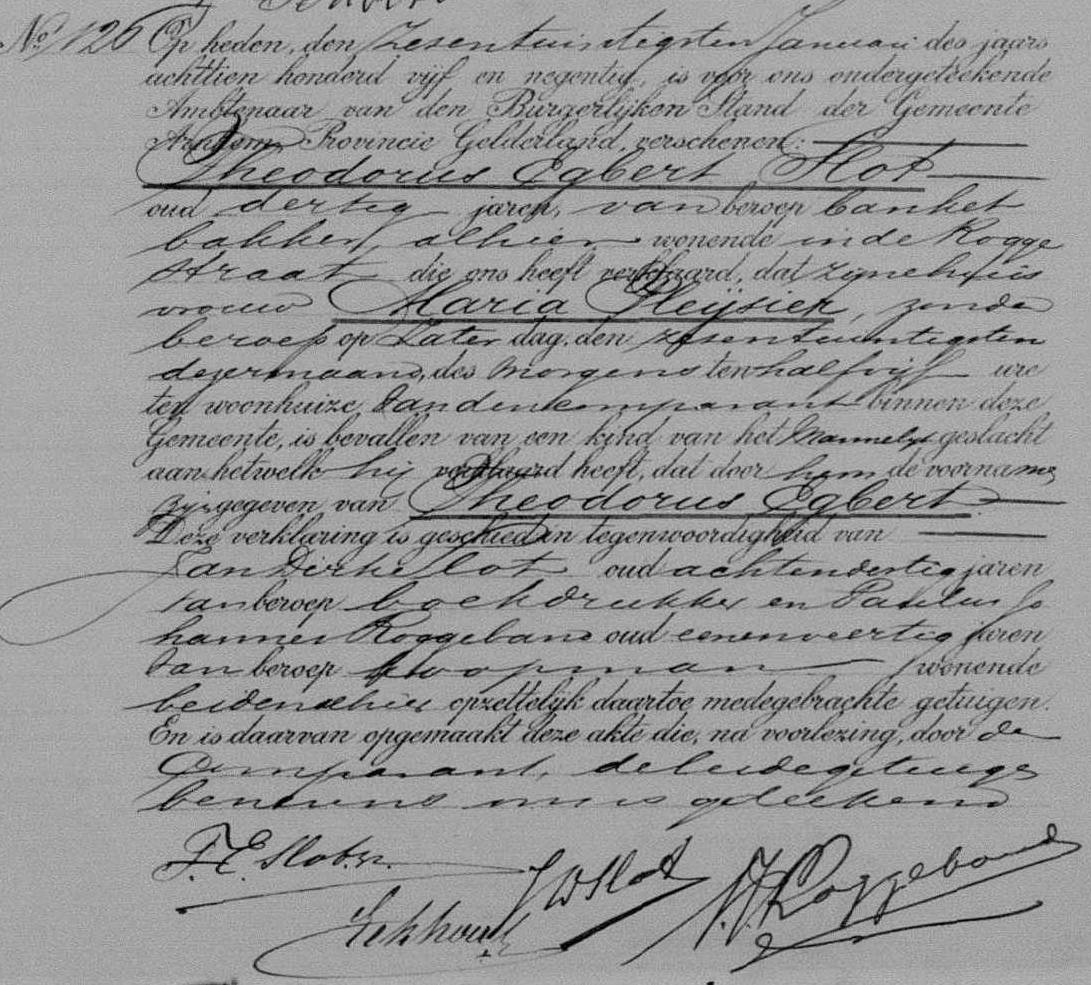 No. 126 Op heden, den Zesentwintigsten Januari des jaars
achttien honderd vijf en negentig, is voor ons ondergeteekende
Ambtenaar van den Burgerlijken Stand der Gemeente
Arnhem Provincie Gelderland, verschenen:
Theodorus Egbert Slot
oud dertig jaren, van beroep banket
bakker, alhier wonende in de Rogge
straat die ons heeft verklaard, dat zijne huis
vrouw Maria Fleijsier, zonder
beroep op Zater dag, den zesentwintigsten
dezer maand, des morgens ten half vijf ure
ten woonhuize van den comparant binnen deze
Gemeente, is bevallen van een kind van het Mannelijk geslacht
aan hetwelk hij verklaard heeft, dat door hem de voorname
zijn gegeven van Theodorus Egbert
Deze verklaring is geschied in tegenwoordigheid van
Jan Dirk Slot oud achtendertig jaren
van beroep boekdrukker en Paulus Jo
hannes Roggeband oud eenenveertig jaren
van beroep koopman wonende
beiden alhier opzettelijk daartoe medegebrachte getuigen.
En is daarvan opgemaakt deze akte die, na voorlezing, door de
Comparant, de beide getuigen
benevens ons is geteekend
T. E. Slot
J D Slot
P. J. Roggeband